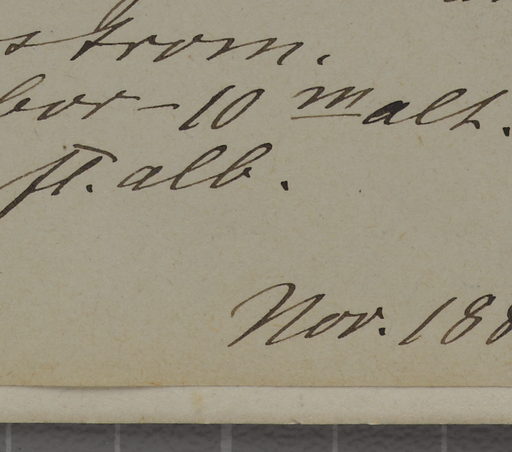 strom.
bor - 10 m alt.
ft. alb.
Nov. 188